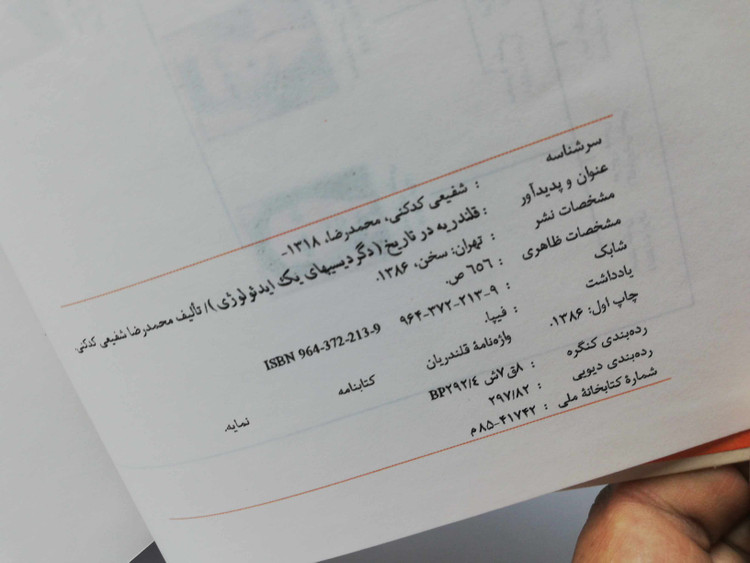 سرشناسه : شفیعی کدکنی، محمدرضا، ۱۳۱۸-
عنوان و پدیدآور : قلندریه در تاریخ (دگردیسیهای یک ایدئولوژی)/ تألیف محمدرضا شفیعی کدکنی.
مشخصات نشر : تهران: سخن، ۱۳۸۶.
مشخصات ظاهری : ۶۵۶ ص.
شابک : ۹-۲۱۳-۳۷۲-۹۶۴ ISBN 964-372-213-9
یادداشت : فیپا.
چاپ اول: ۱۳۸۶. واژه‌نامۀ قلندریان کتابنامه نمایه.
رده‌بندی کنگره : ۸ق۷ش/BP۲۹۲/۴
رده‌بندی دیویی : ۲۹۷/۸۲
شمارۀ کتابخانۀ ملی : ۴۱۷۴۲-۸۵م